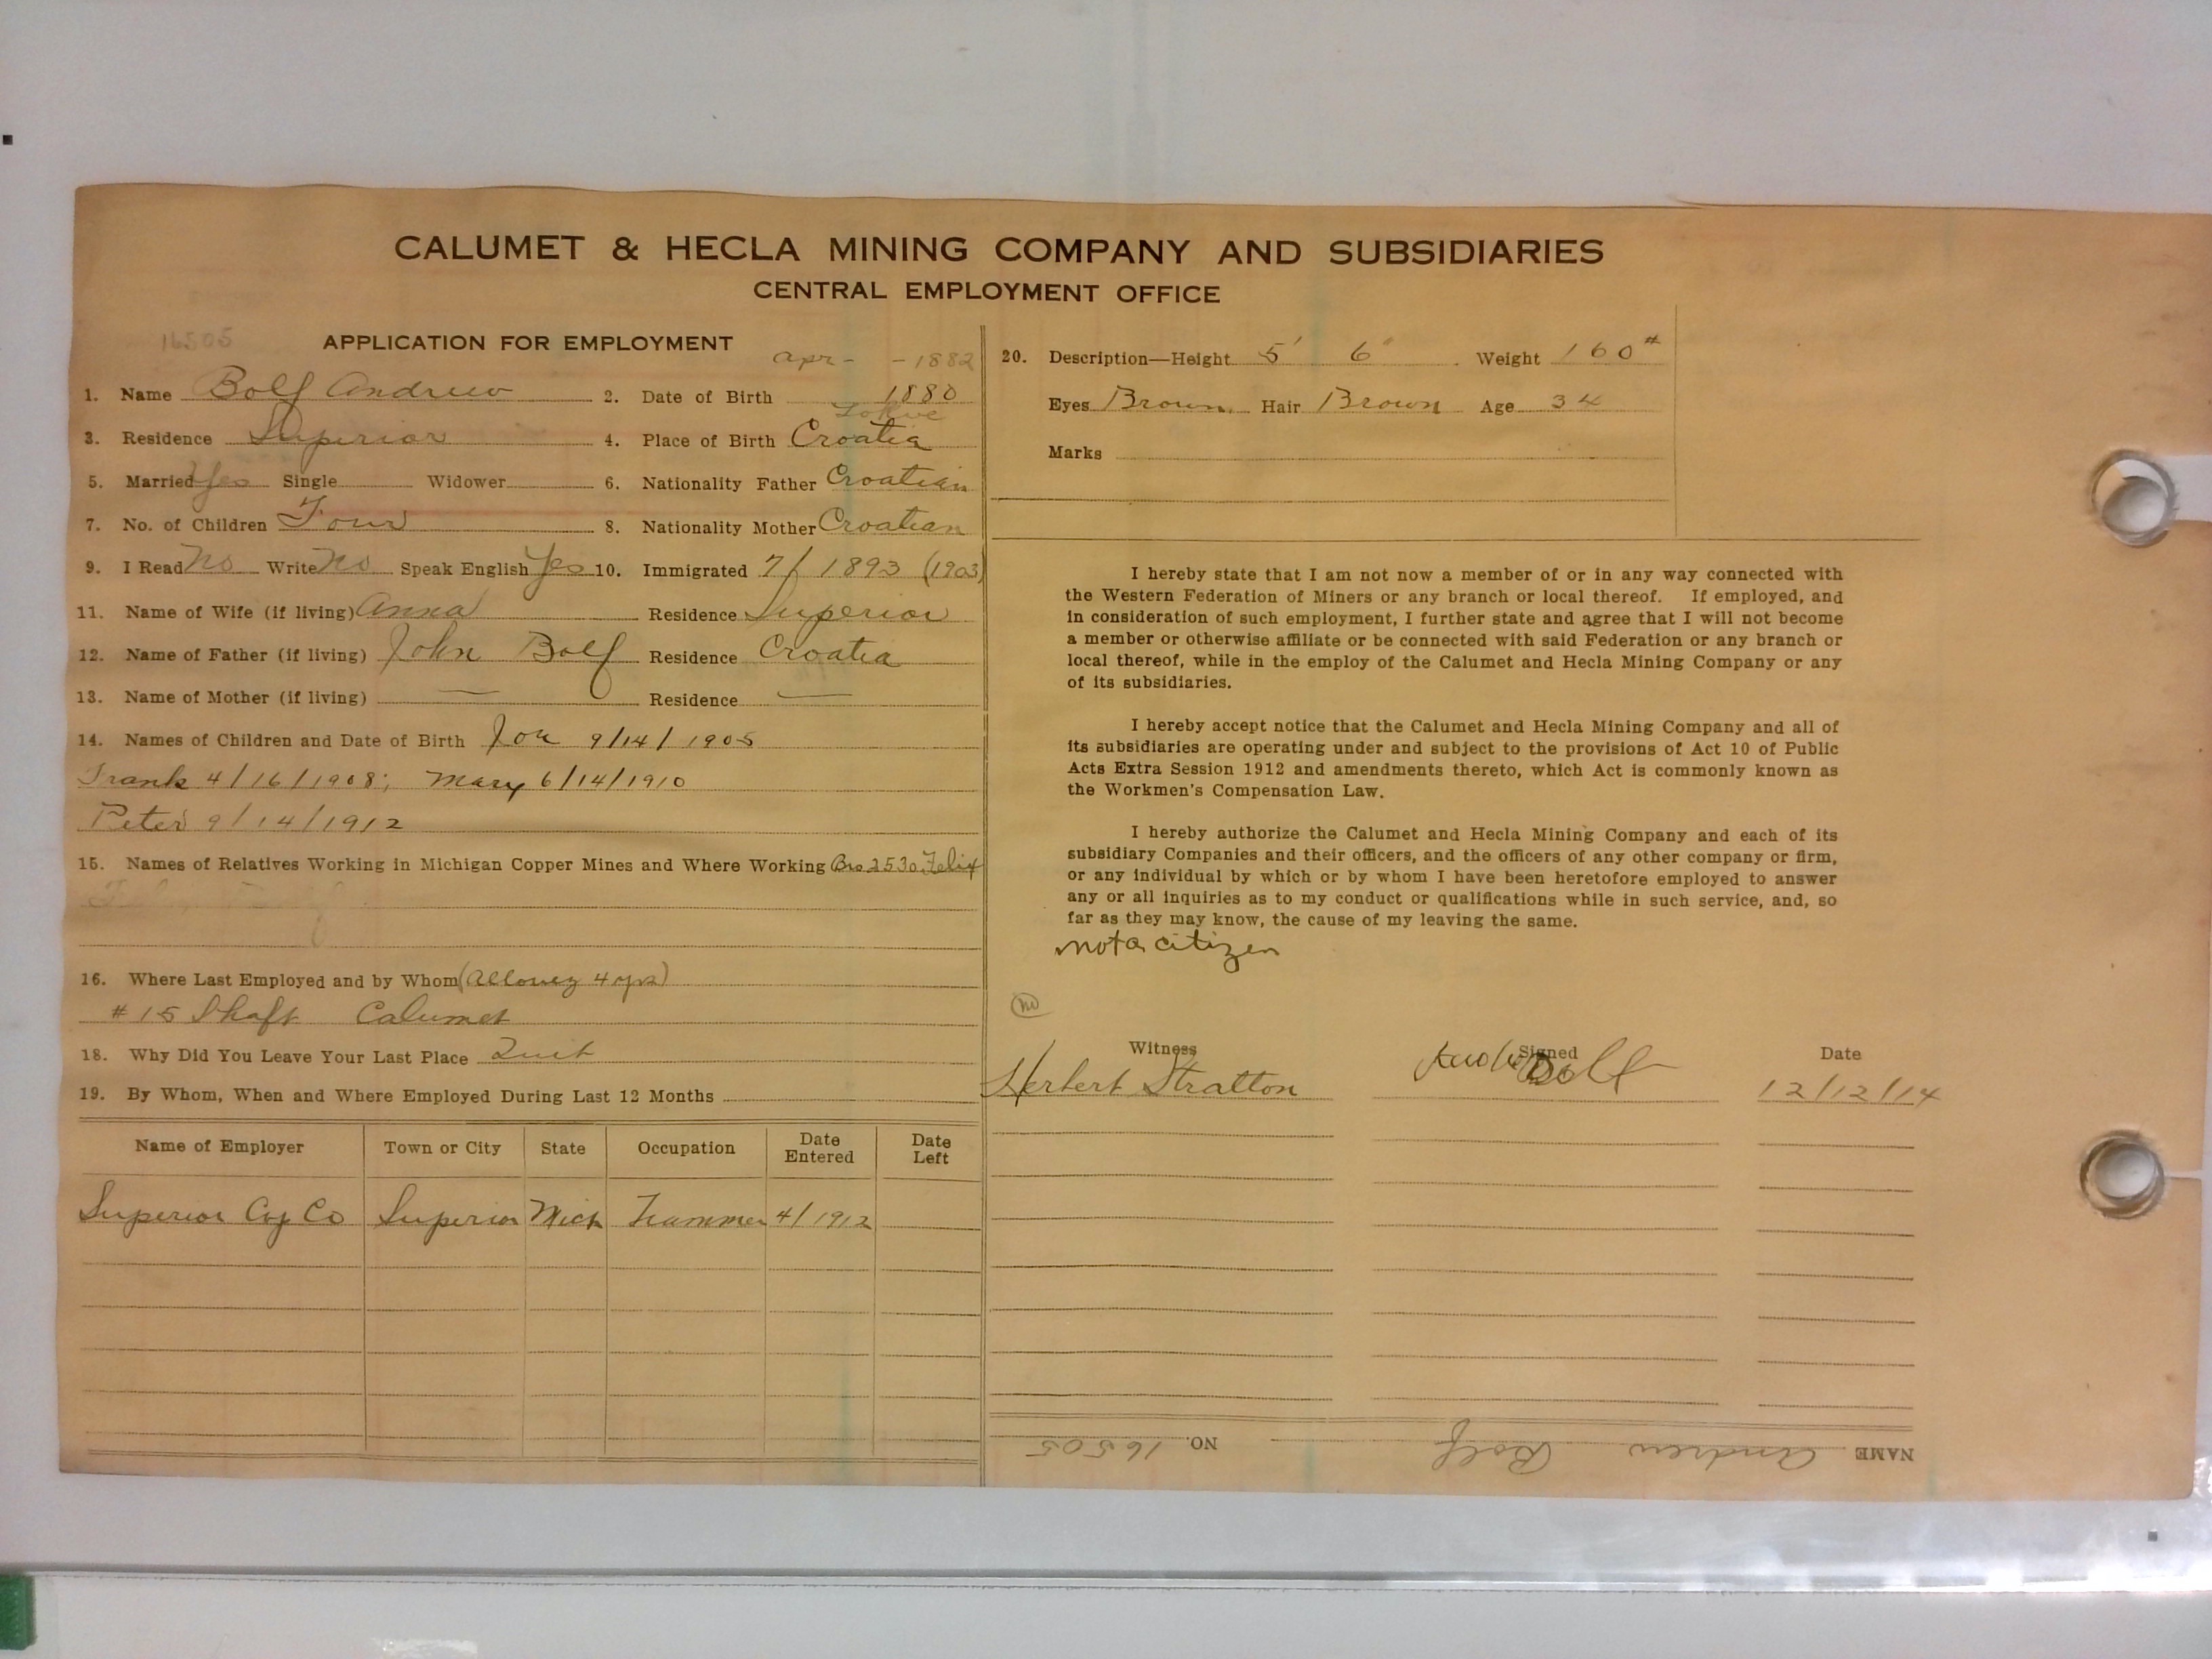 CALUMET & HECLA MINING COMPANY AND SUBSIDIARIES
CENTRAL EMPLOYMENT OFFICE
16505
APPLICATION FOR EMPLOYMENT
apr - - 1882
1. Name Bolf Andrew 2. Date of Birth 1880
Lokve
3. Residence Superior 4. Place of Birth Croatia
5. Married Yes Single Widower 6. Nationality Father Croatian
7. No. of Children Four 8. Nationality Mother Croatian
9. I Read No Write No Speak English Yes 10. Immigrated 7/ 1893 (1903)
11. Name of Wife (if living) Anna Residence Superior
12. Name of Father (if living) John Bolf Residence Croatia
13. Name of Mother (if living) — Residence —
14. Names of Children and Date of Birth Joe 9/14/1905
Frank 4/16/1908; Mary 6/14/1910
Peter 9/14/1912
15. Names of Relatives Working in Michigan Copper Mines and Where Working Bro 2530 Felix
16. Where Last Employed and by Whom (Allouez 4 yrs)
# 15 Shaft Calumet
18. Why Did You Leave Your Last Place Quit
19. By Whom, When and Where Employed During Last 12 Months
Name of Employer Town or City State Occupation Date Entered Date Left
Superior Cop Co Superior Mich Trammer 4/1912
20. Description—Height 5' 6" Weight 160#
Eyes Brown Hair Brown Age 34
Marks
I hereby state that I am not now a member of or in any way connected with
the Western Federation of Miners or any branch or local thereof. If employed, and
in consideration of such employment, I further state and agree that I will not become
a member or otherwise affiliate or be connected with said Federation or any branch or
local thereof, while in the employ of the Calumet and Hecla Mining Company or any
of its subsidiaries.
I hereby accept notice that the Calumet and Hecla Mining Company and all of
its subsidiaries are operating under and subject to the provisions of Act 10 of Public
Acts Extra Session 1912 and amendments thereto, which Act is commonly known as
the Workmen's Compensation Law.
I hereby authorize the Calumet and Hecla Mining Company and each of its
subsidiary Companies and their officers, and the officers of any other company or firm,
or any individual by which or by whom I have been heretofore employed to answer
any or all inquiries as to my conduct or qualifications while in such service, and, so
far as they may know, the cause of my leaving the same.
not a citizen
Witness Signed Date
Herbert Stratton Bolf 12/12/14
NAME Andrew Bolf NO. 16505